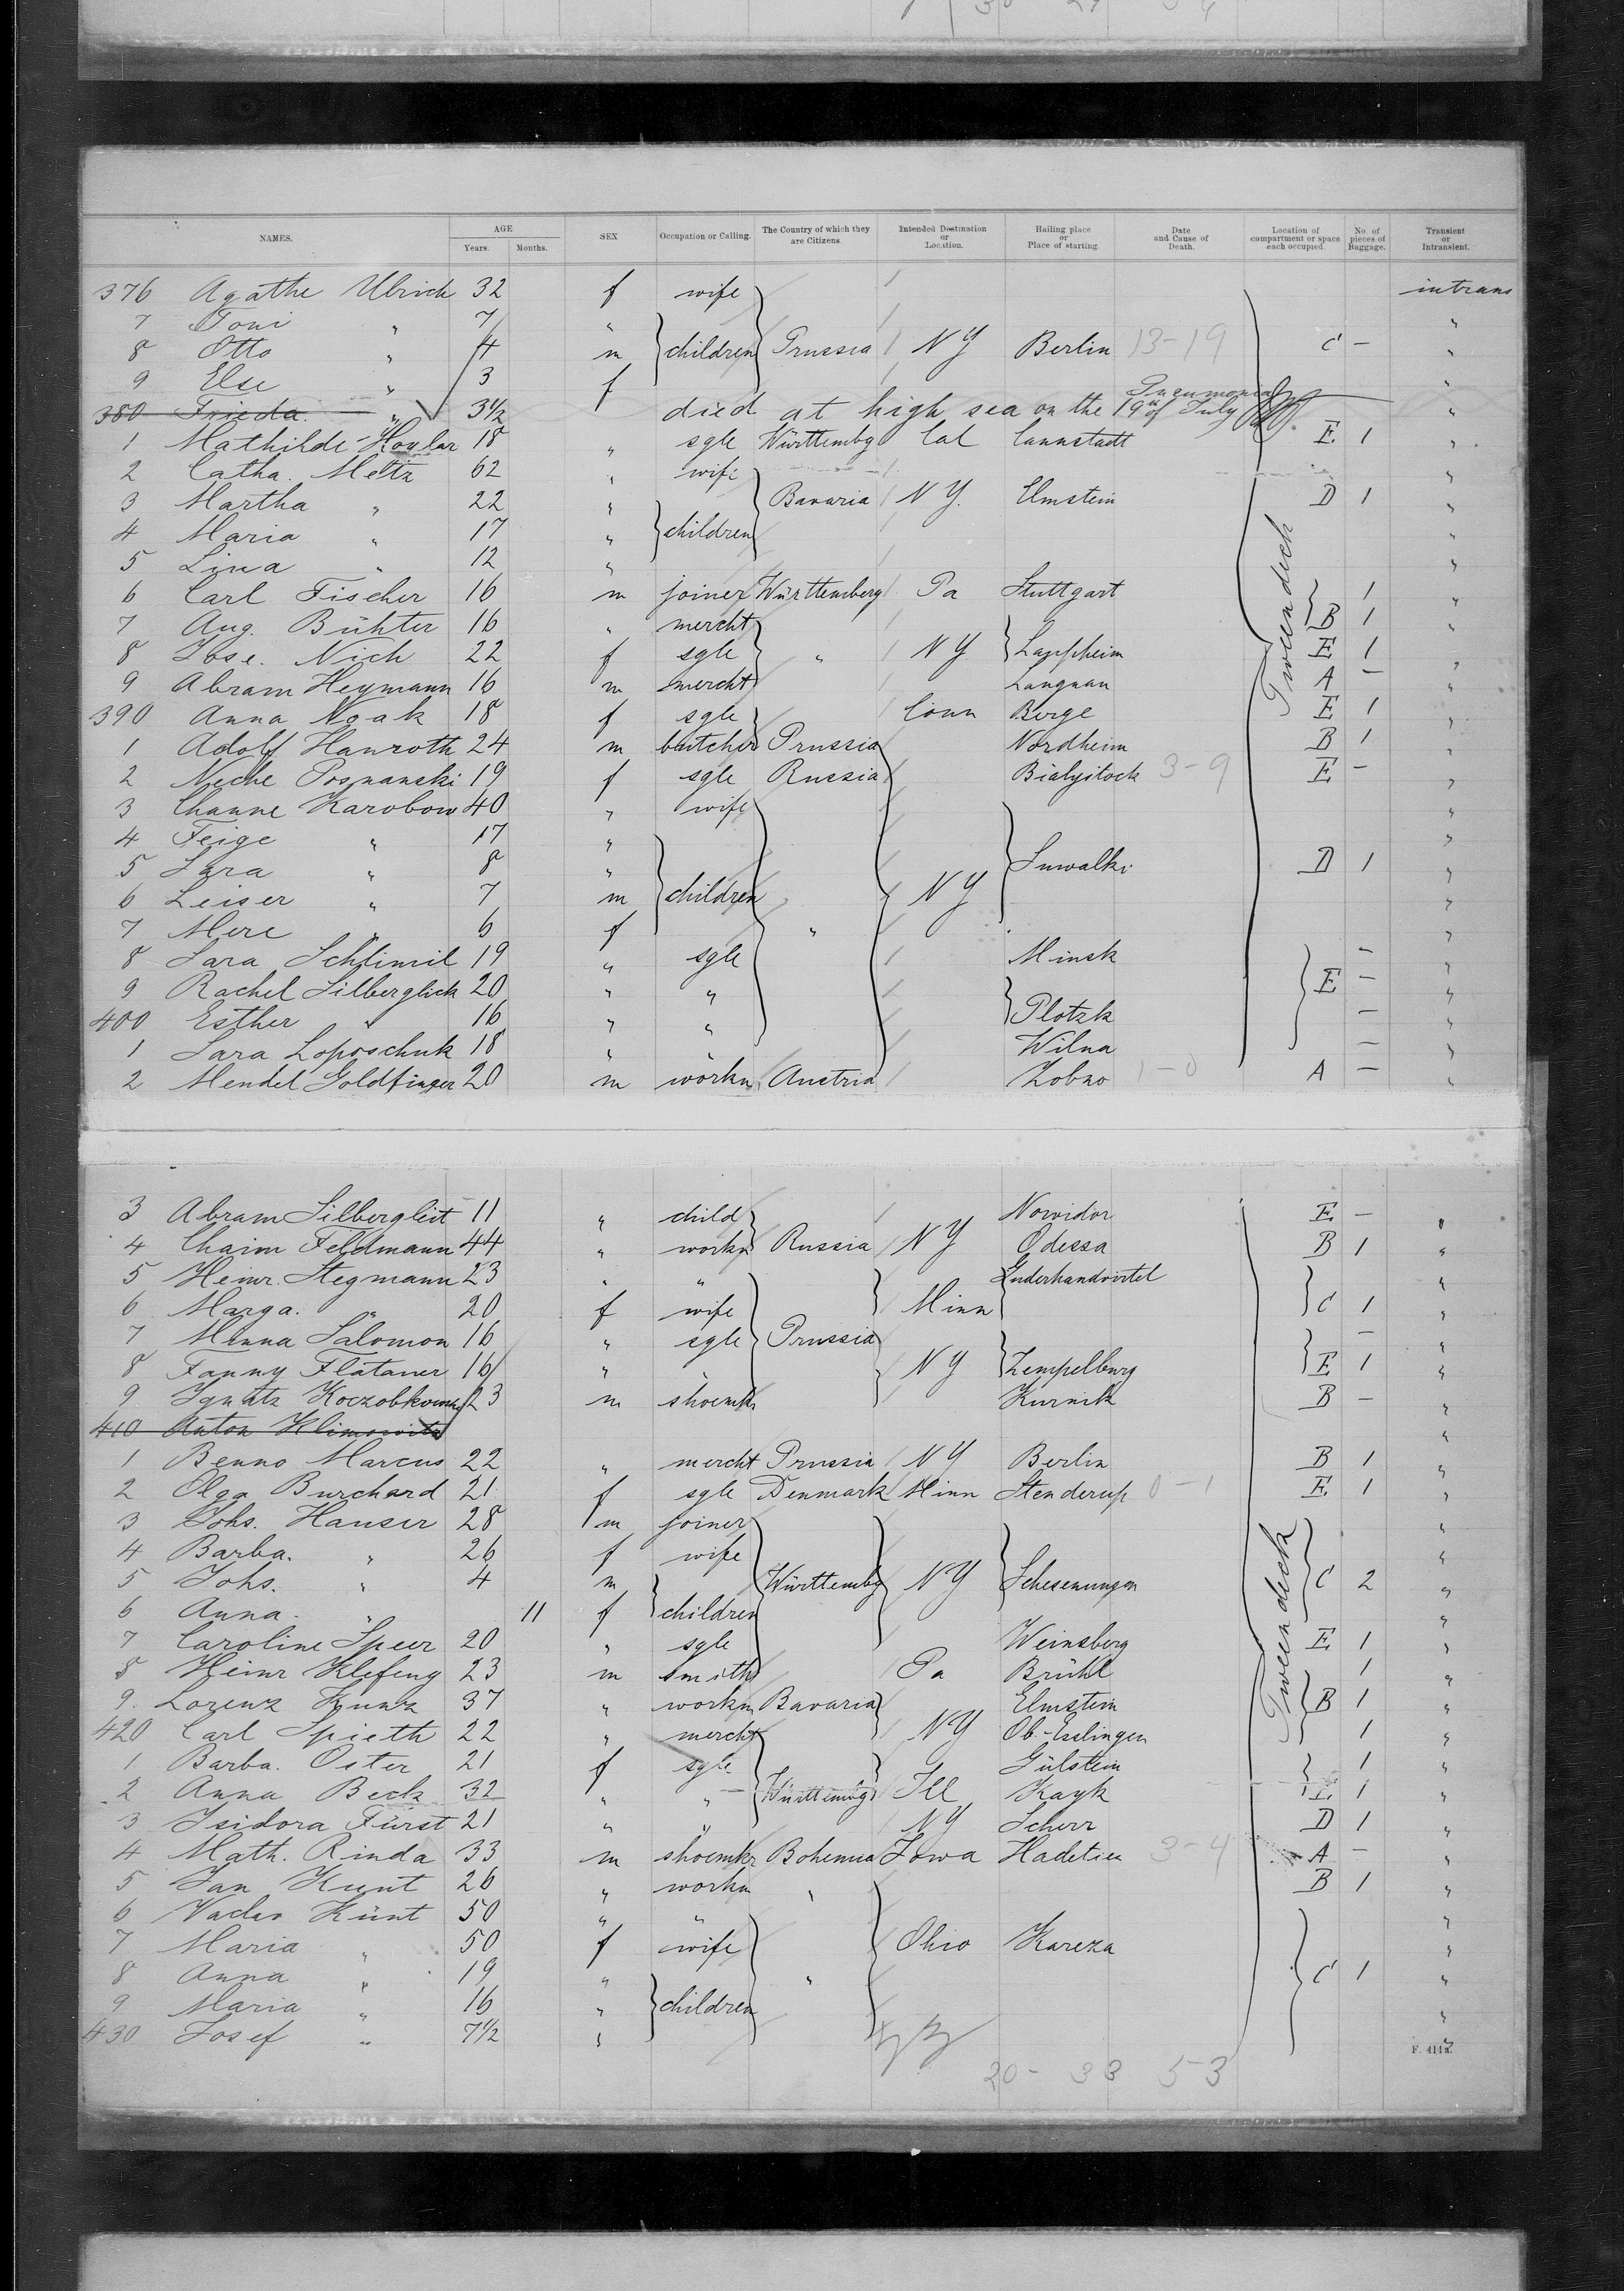 NAMES. AGE Years. Months. SEX Occupation or Calling. The Country of which they are Citizens. Intended Destination or Location. Hailing place or Place of starting. Date and Cause of Death. Location of compartment or space each occupied. No. of pieces of Baggage. Transient or Intransient.
376 Agathe Ulrich 32 f wife intrans
7 Toni " 7 " "
8 Otto " 4 m children Prussia N Y Berlin 13-19 C - "
9 Else " 3 f "
380 Frieda " 3 1/2 died at high sea on the 19th of July Pneumonia "
1 Mathilde Hoylar 18 " sgle Württembg Cal Cannstadt E 1 "
2 Catha. Metz 62 " wife "
3 Martha " 22 " Bavaria N Y. Elmstein D 1 "
4 Maria " 17 " children "
5 Lina " 12 " "
6 Carl Fischer 16 m joiner Württemberg Pa Stuttgart 1 "
7 Aug. Bühter 16 " mercht B 1 "
8 Nich 22 f sgle " N Y Lappheim E 1 "
9 Abram Heymann 16 m mercht Langnau A - "
390 Anna Noak 18 f sgle Conn Berge E 1 "
1 Adolf Hanroth 24 m butcher Prussia Nordheim B 1 "
2 Neche Posnanski 19 f sgle Russia Bialystock 3-9 E - "
3 Channe Karobow 40 " wife "
4 Feige " 17 " "
5 Sara " 8 " Suwalki D 1 "
6 Leiser " 7 m children N Y "
7 Mere " 6 f " "
8 Sara Schlimil 19 " sgle Minsk - "
9 Rachel Silberglick 20 " " E - "
400 Esther " 16 " " Plotzk - "
1 Sara Loposchuk 18 " " Wilna - "
2 Mendel Goldfinger 20 m workm Austria Zobno 1-0 A - "
Tweendeck
3 Abram Silbergleit 11 " child Nowidor E - "
4 Chaim Feldmann 44 " workm Russia N Y Odessa B 1 "
5 Heinr. Stegmann 23 " " "
6 Marga. " 20 f wife Minn C 1 "
7 Minna Salomon 16 " sgle Prussia - "
8 Fanny Flataner 16 " " N Y Zempelburg E 1 "
9 Ignatz 23 m shoemkr Kurnik B - "
410 Anton Klimowitz "
1 Benno Marcus 22 " mercht Prussia N Y Berlin B 1 "
2 Olga Burchard 21 f sgle Denmark Minn Stenderup 0-1 E 1 "
3 Johs. Hauser 28 m joiner "
4 Barba. " 26 f wife "
5 Johs. " 4 m Württembg N Y C 2 "
6 Anna. " 11 f children "
7 Caroline Speer 20 " sgle Weinsberg E 1 "
8 Heinr Klefeng 23 m smith Pa Brühl 1 "
9. Lorenz Kunz 37 " workm Bavaria Elmstein B 1 "
420 Carl Spieth 22 " mercht N Y Ob-Esslingen 1 "
1 Barba. Oster 21 f sgle Gülstein 1 "
2 Anna Beck 32 " " Württembg Ill Kayk E 1 "
3 Isidora Fürst 21 " " N Y Scherr D 1 "
4 Math. Rinda 33 m shoemkr Bohemia Iowa Hadetieu 3-4 A - "
5 Jan Kunt 26 " workm " B 1 "
6 Vaclav Künt 50 " " "
7 Maria " 50 f wife Ohio Kareza "
8 Anna " 19 " " C 1 "
9 Maria " 16 " children "
430 Josef " 7 1/2 " "
Tweendeck
F. 411a.
20- 33 53